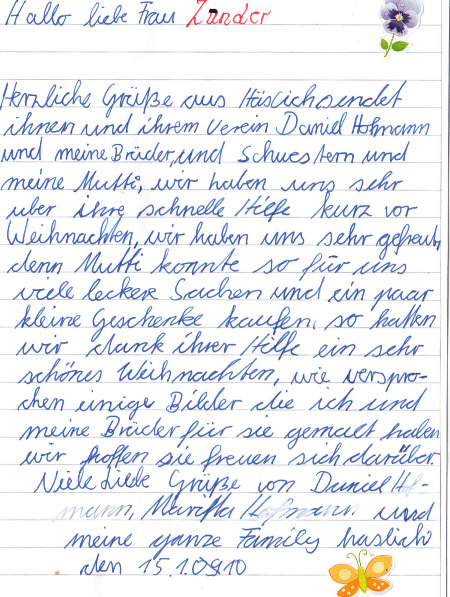 Hallo liebe Frau Zander
Herzliche Grüße aus Häslich sendet
ihnen und ihrem Verein Daniel Hofmann
und meine Brüder, und Schwestern und
meine Mutti, wir haben uns sehr
uber ihre schnelle Hilfe kurz vor
Weihnachten, wir haben uns sehr gefreut,
denn Mutti konnte so für uns
viele leckere Sachen und ein paar
kleine Geschenke kaufen, so hatten
wir dank ihrer Hilfe ein sehr
schönes Weihnachten, wie verspro-
chen einige Bilder die ich und
meine Brüder für sie gemalt haben
wir hoffen sie freuen sich darüber
Viele Liebe Grüße von Daniel Hof-
mann, Hofmann und
meine ganze Family haslich
den 15.1.0910